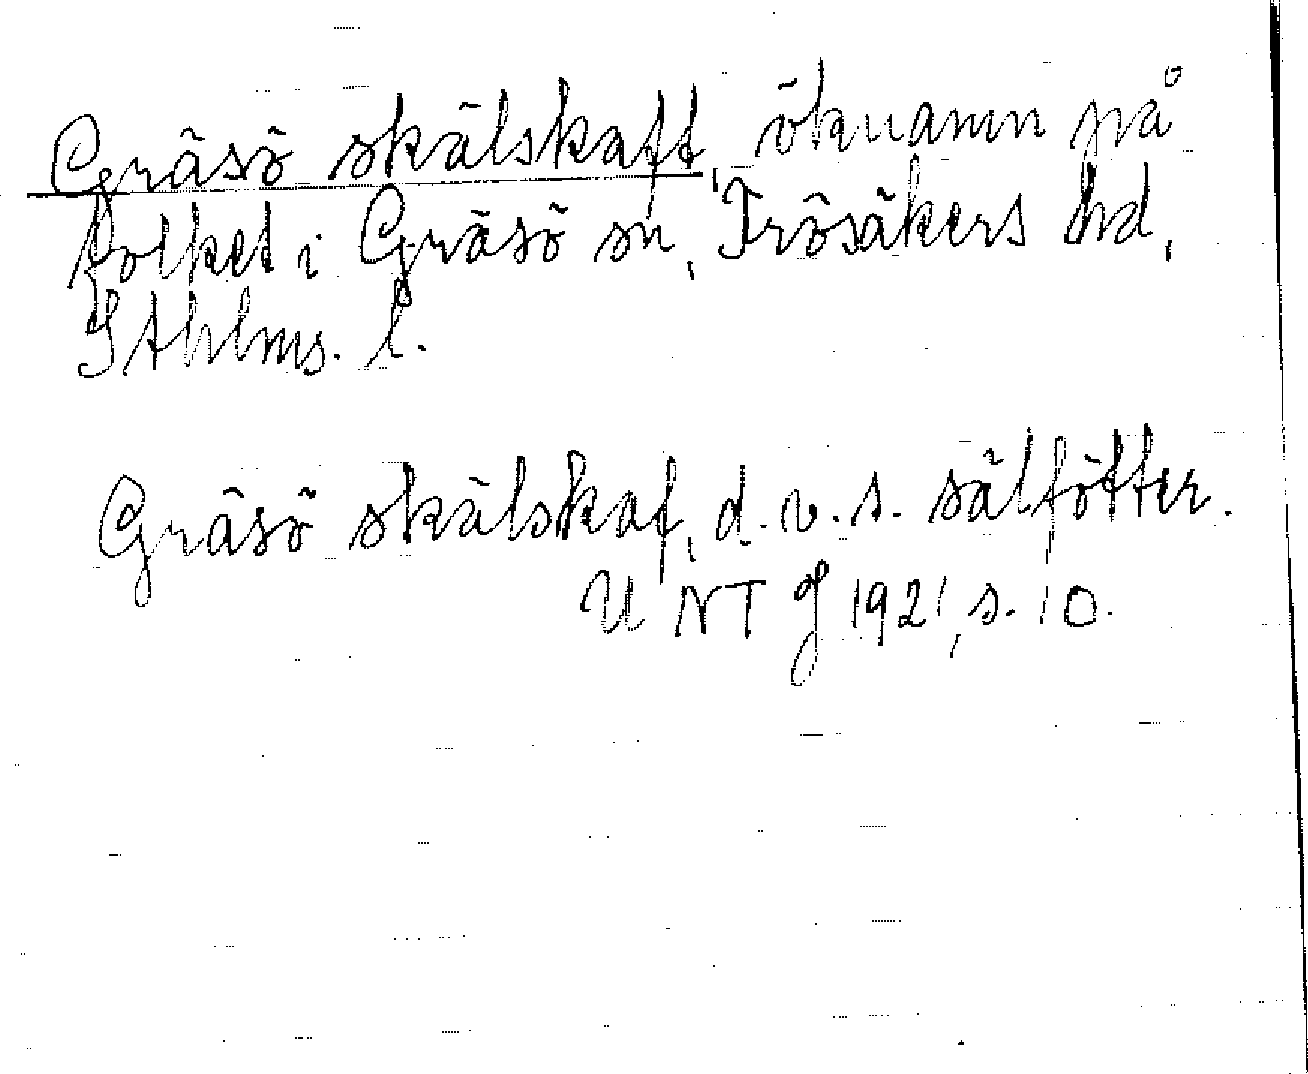 Gräsö skälskaft, öknamn på
folket i Gräsö sn, Frösåkers hd,
Sthlms. l.
Gräsö skälskaf, d.v.s. sälfötter.
UNT J 1921, s. 10.